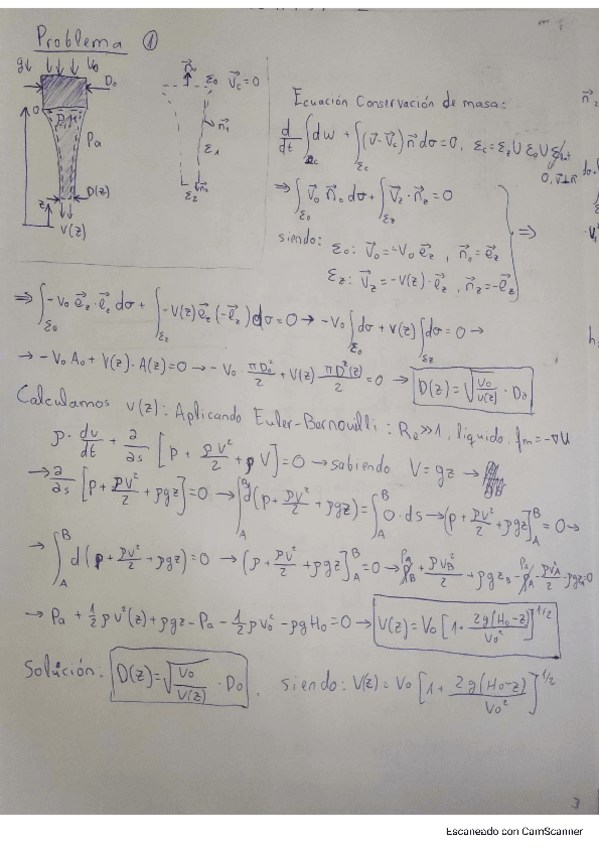 Problema ①
g↓ V₀
D₀
0
ρ, μ
Pa
D(z)
z
V(z)
n⃗₀ Σ₀ V⃗c = 0
n⃗₁
Σ₁
Σ₂ n⃗₂
Ecuación Conservación de masa:
d/dt ∫_Ωc dω + ∫_Σc (v⃗ - v⃗c) n⃗ dσ = 0, Σc = Σ₂ ∪ Σ₀ ∪ Σlat
0, v⃗⊥n⃗
⇒ ∫_Σ₀ V⃗₀ n⃗₀ dσ + ∫_Σz V⃗z · n⃗z = 0
siendo: Σ₀: V⃗₀ = -V₀ e⃗z , n⃗₀ = e⃗z ⇒
Σz: V⃗z = -V(z) · e⃗z , n⃗z = -e⃗z
⇒ ∫_Σ₀ -V₀ e⃗z · e⃗z dσ + ∫_Σz -V(z) e⃗z (-e⃗z) dσ = 0 → -V₀ ∫_Σ₀ dσ + V(z) ∫_Σz dσ = 0 →
→ -V₀ A₀ + V(z) · A(z) = 0 → -V₀ · πD₀²/2 + V(z) · πD²(z)/2 = 0 → D(z) = √(V₀/V(z)) · D₀
Calculamos v(z): Aplicando Euler-Bernouilli: Re >> 1, líquido, fm = -∇U
ρ · dv/dt + ∂/∂s [P + ρV²/2 + ρV] = 0 → sabiendo V = gz →
→ ∂/∂s [P + ρV²/2 + ρgz] = 0 → ∫_A^B d(P + ρV²/2 + ρgz) = ∫_A^B 0 · ds → (P + ρV²/2 + ρgz]_A^B = 0 →
→ ∫_A^B d(P + ρV²/2 + ρgz) = 0 → (P + ρV²/2 + ρgz]_A^B = 0 → P_B + ρV_B²/2 + ρgz_B - P_A - ρV_A²/2 - ρgz_A = 0
→ Pa + 1/2 ρV²(z) + ρgz - Pa - 1/2 ρV₀² - ρgH₀ = 0 → V(z) = V₀ [1 + 2g(H₀-z)/V₀²]^1/2
Solución: D(z) = √(V₀/V(z)) · D₀ . siendo: V(z) = V₀ [1 + 2g(H₀-z)/V₀²]^1/2
3
Escaneado con CamScanner